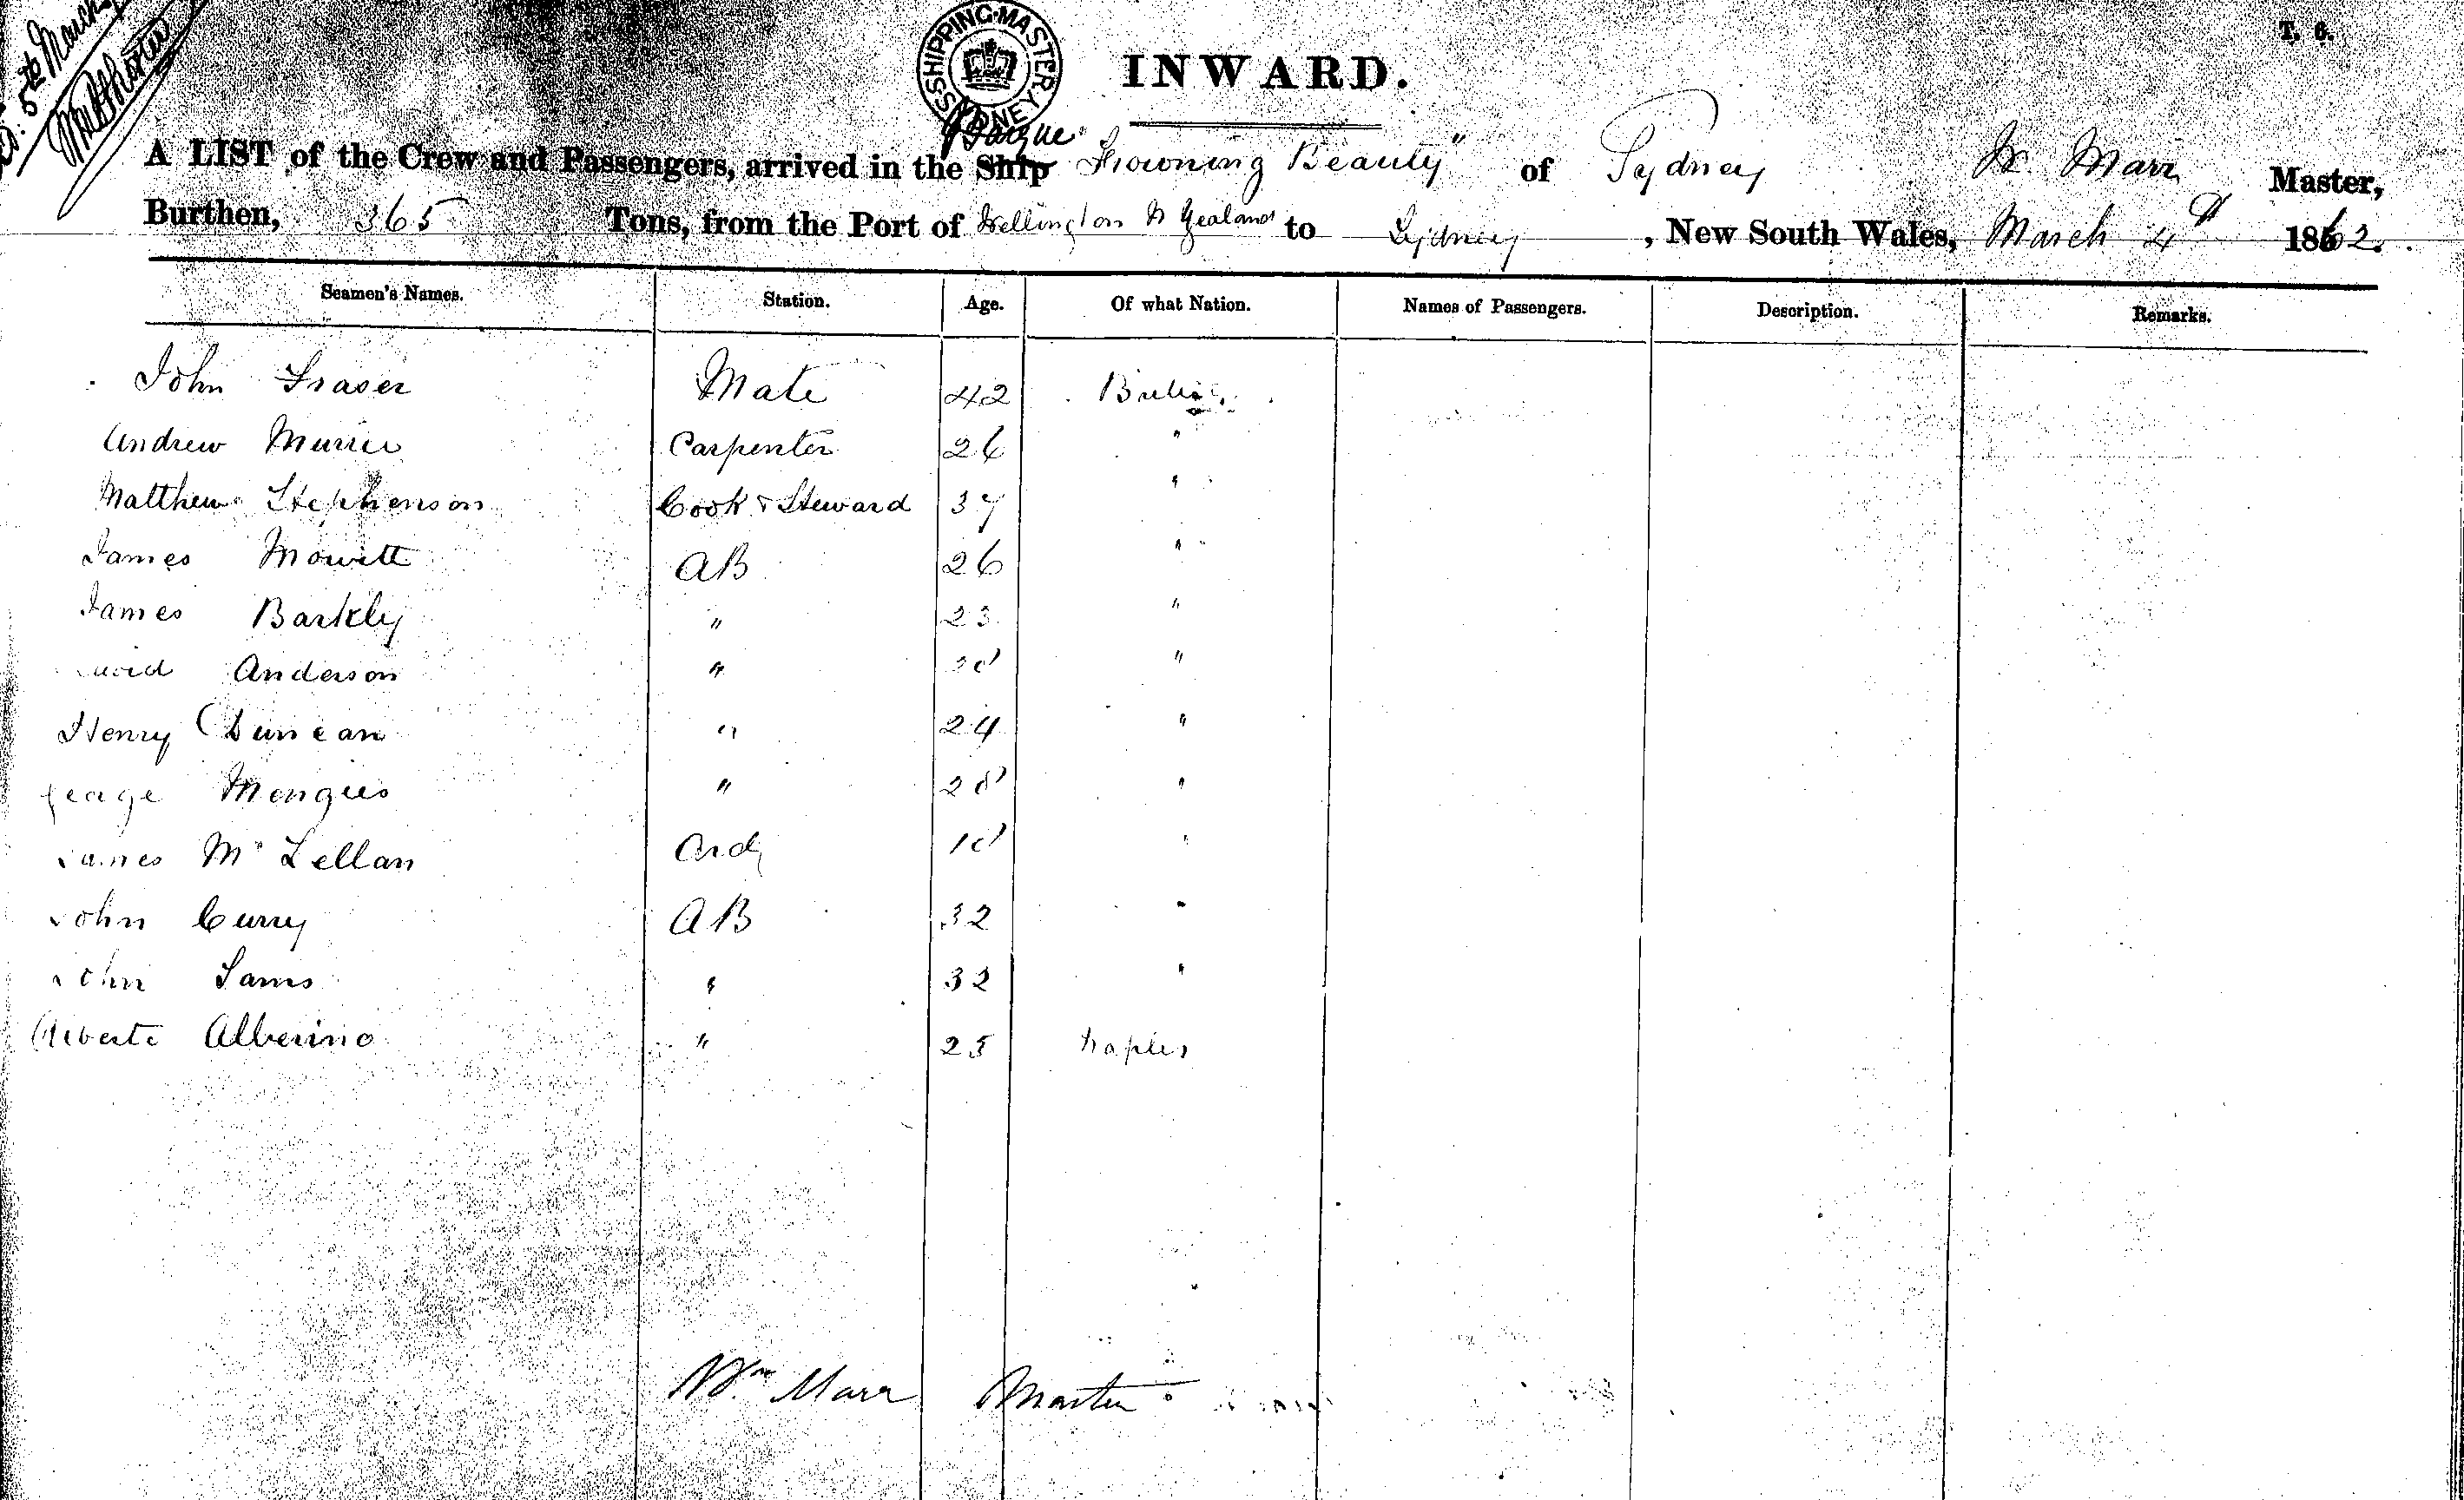 5th March
T. 6.
SHIPPING MASTER SYDNEY
INWARD.
Barque
A LIST of the Crew and Passengers, arrived in the Ship "Frowning Beauty" of Sydney W. Marr Master,
Burthen, 365 Tons, from the Port of Wellington N Zealand to Sydney, New South Wales, March 4th 1862.
Seamen's Names. Station. Age. Of what Nation. Names of Passengers. Description. Remarks.
John Fraser Mate 42 British
Andrew Murrie Carpenter 26 "
Matthew Stephenson Cook & Steward 37 "
James Mowitt AB 26 "
James Barkly " 23 "
David Anderson " "
Henry Duncan " 24 "
George Mengies " 28 "
James McLellan Ordy 18 "
John Curry AB 32 "
John Sams " 32 "
Alberto Alberino " 25 Naples
Wm Marr Master